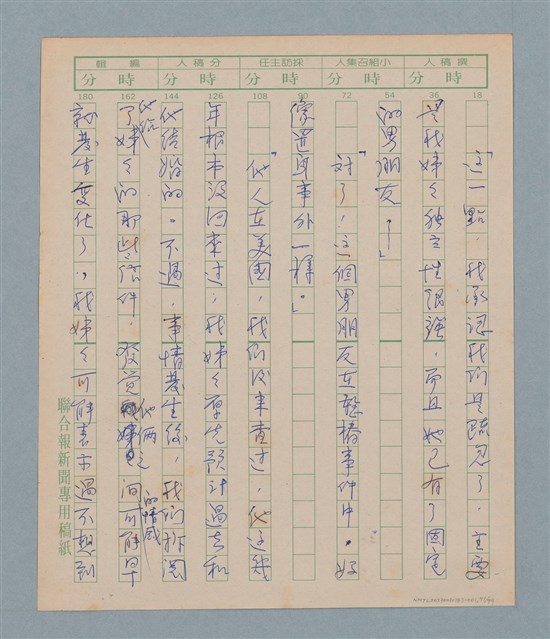 撰稿人 小組召集人 採訪主任 分稿人 編輯
時 分 時 分 時 分 時 分 時 分
18
36
54
72
90
108
126
144
162
180
「這一點,我承認我們是疏忽了。主要
是我姊姊独立性很強,而且她已有了固定
的男朋友。」
「对了!這個男朋友在整樁事件中,好
像置身事外一樣。」
「他人在美國,我們後來查过,他这幾
年根本沒回來过,我姊姊原先預計過去和
他結婚的。不過,事情發生後,我們才
他給了姊姊的那些信件,發覺他倆之間的情感可能早
就發生变化了,我姊姊可能表示過不想到
聯合報新聞專用稿紙